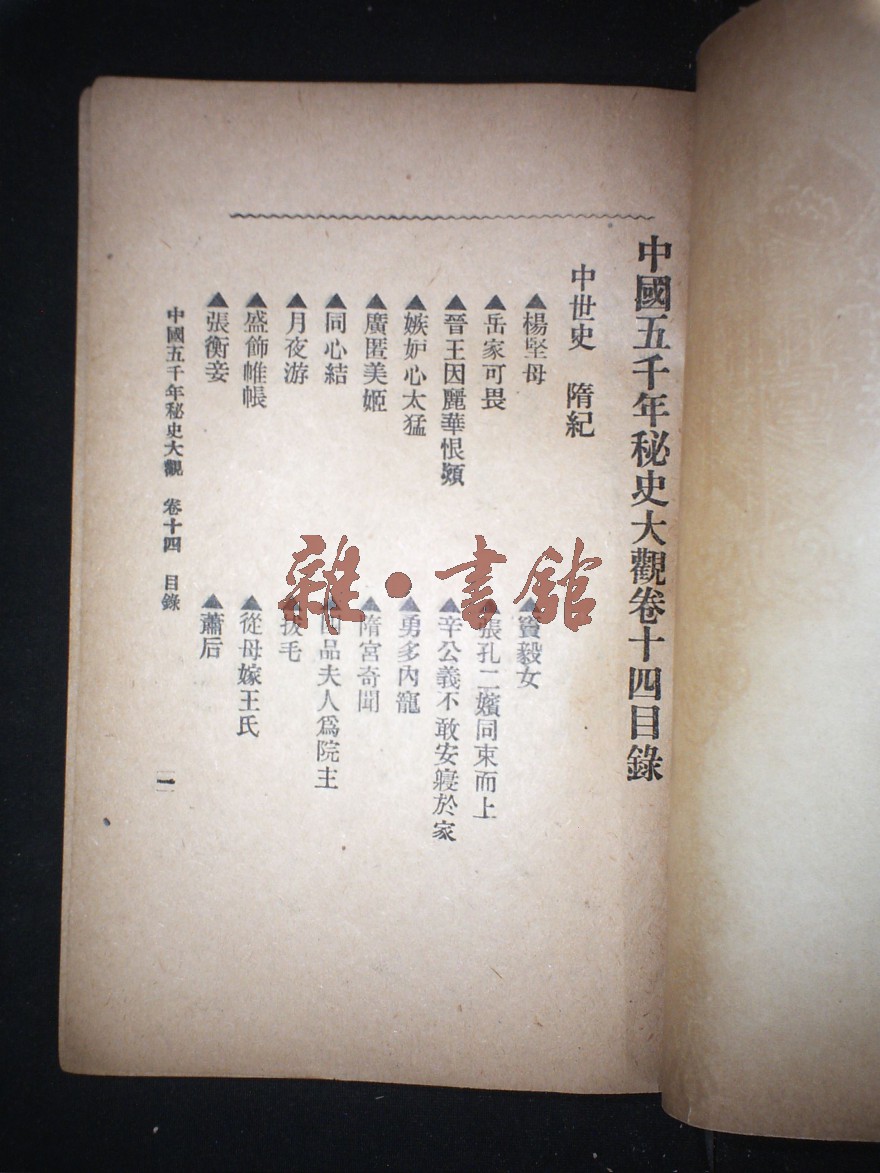 中國五千年秘史大觀卷十四目錄
中世史 隋紀
▲楊堅母 ▲竇毅女
▲岳家可畏 ▲張孔二嬪同束而上
▲晉王因麗華恨熲 ▲辛公義不敢安寢於家
▲嫉妒心太猛 ▲勇多內寵
▲廣匿美姬 ▲隋宮奇聞
▲同心結 ▲四品夫人爲院主
▲月夜游 ▲拔毛
▲盛飾帷帳 ▲從母嫁王氏
▲張衡妾 ▲蕭后
中國五千年秘史大觀 卷十四 目錄 一
雜·書館